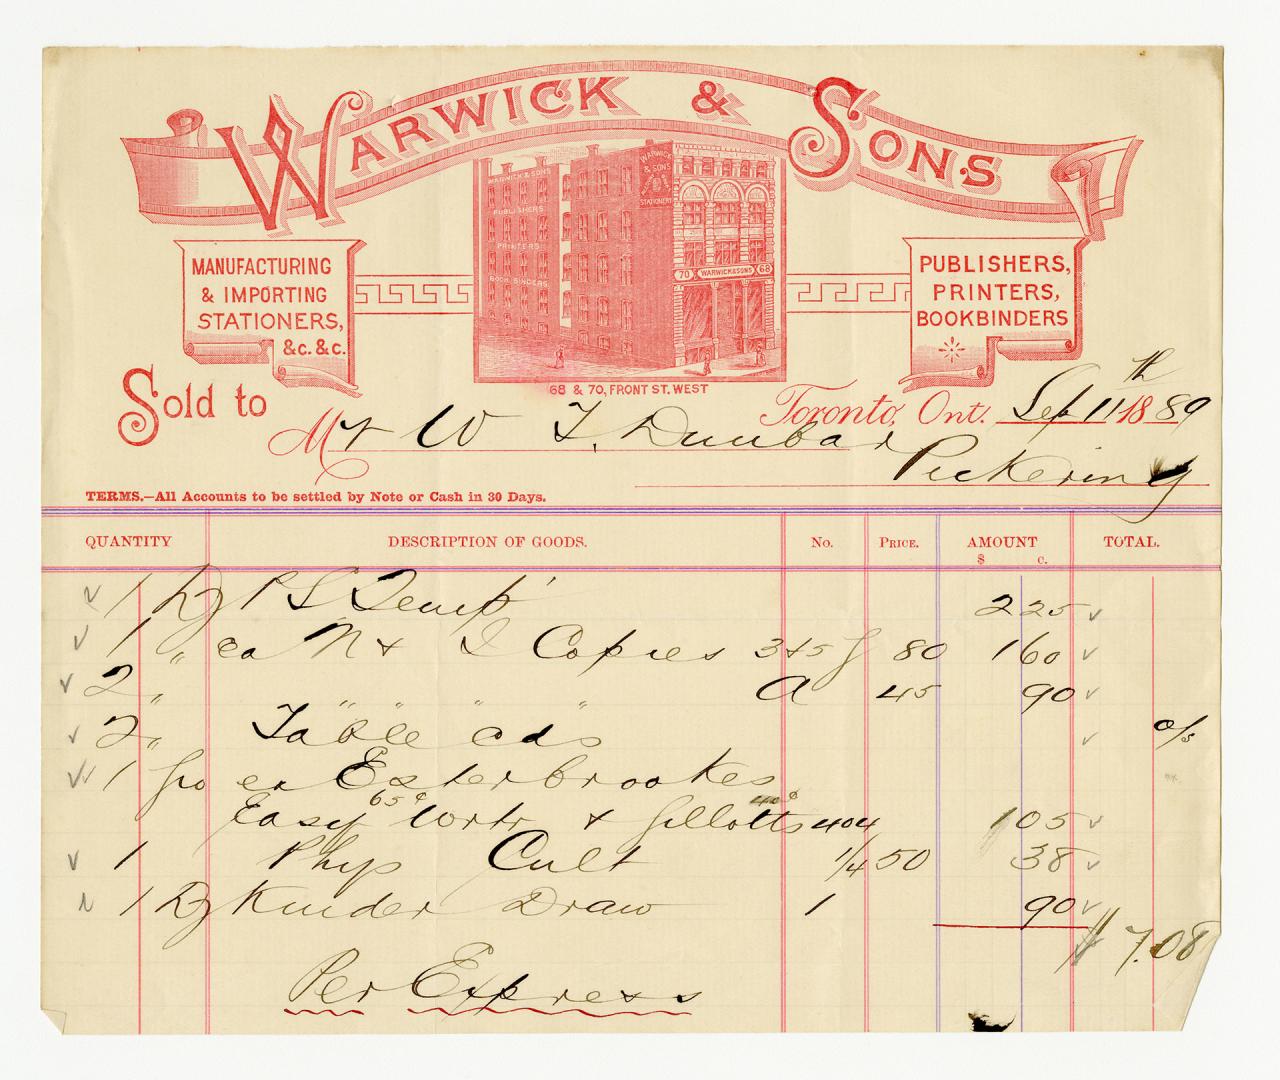 WARWICK & SONS
MANUFACTURING
& IMPORTING
STATIONERS,
&c. &c.
WARWICK & SONS
PUBLISHERS
PRINTERS
BOOK BINDERS
WARWICK
& SONS
STATIONERY
70 WARWICK & SONS 68
PUBLISHERS,
PRINTERS,
BOOKBINDERS
68 & 70, FRONT ST. WEST
Toronto, Ont. Sep 11th 1889
Sold to
Mr W T. Dunbar
Pickering
TERMS.—All Accounts to be settled by Note or Cash in 30 Days.
QUANTITY DESCRIPTION OF GOODS. No. PRICE. AMOUNT TOTAL.
$ c.
1 Dz P S 225
1 " ea Copies 3 & 5 80 160
2 " " " " " a 45 90
2 " Table cds o/s
1 Gro ea Esterbrookes
65¢ 40¢
Easy Wrtr & Gillotts 404 105
1 Phys Cult 1/4 50 38
1 Dz Kinder Draw 1 90
$ 7.08
Per Express